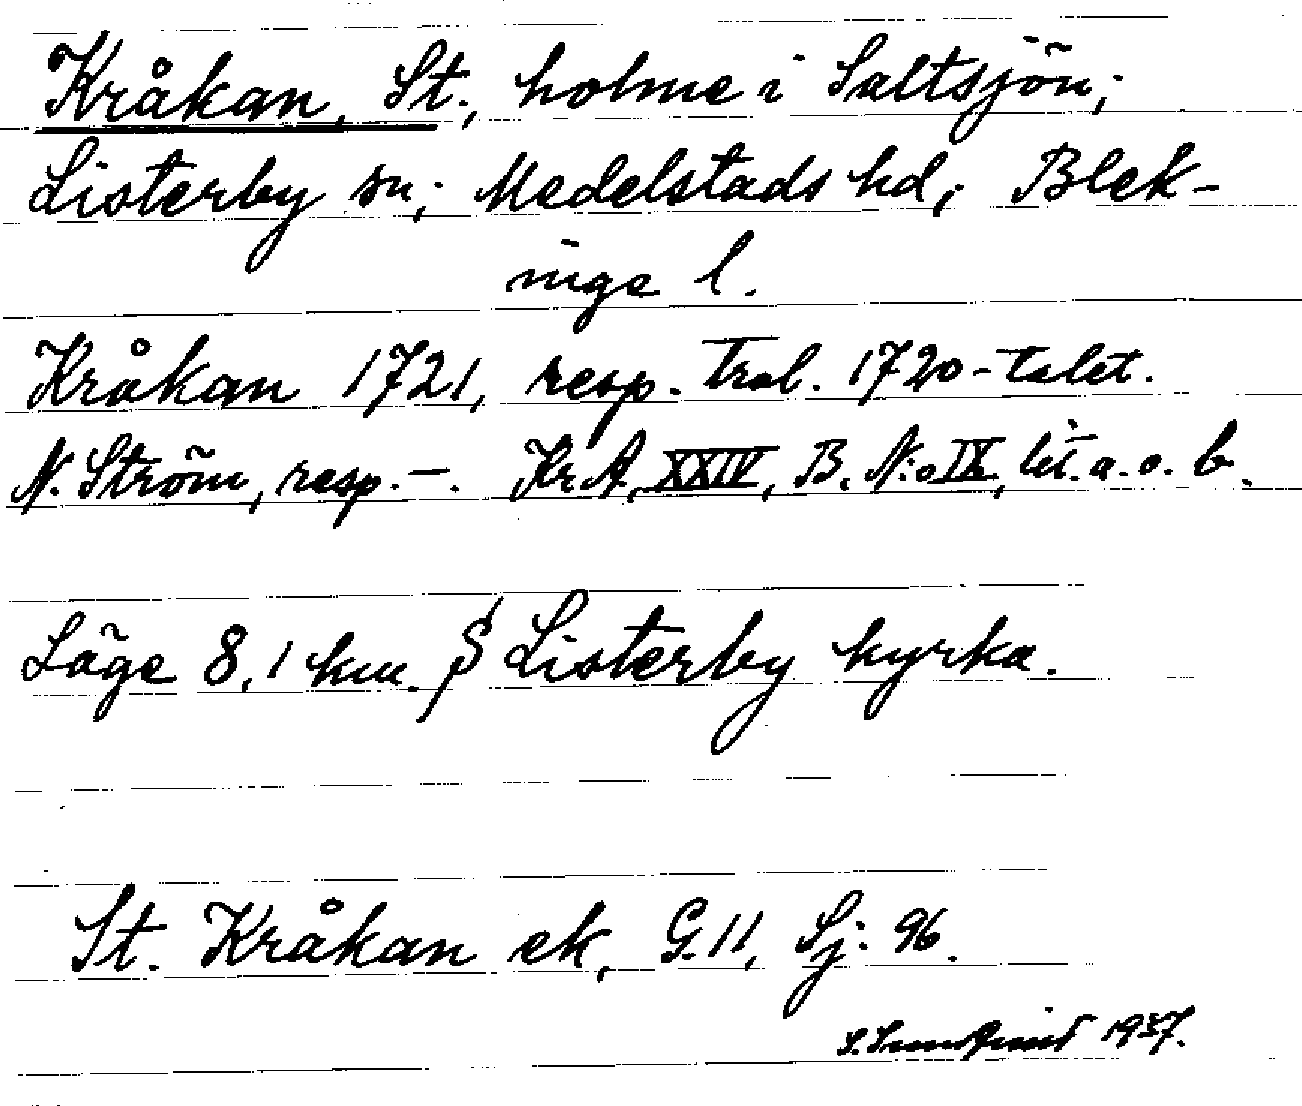 Kråkan, St., holme i Saltsjön;
Listerby sn; Medelstads hd; Blek-
inge l.
Kråkan 1721, resp. Trol. 1720-talet.
N. Ström, resp. –. Kr.A, XXIV, B. N:o IX, lit. a. o. b.
Läge 8,1 km. S Listerby kyrka.
St. Kråkan ek, G.11, Sj: 96.
1937.